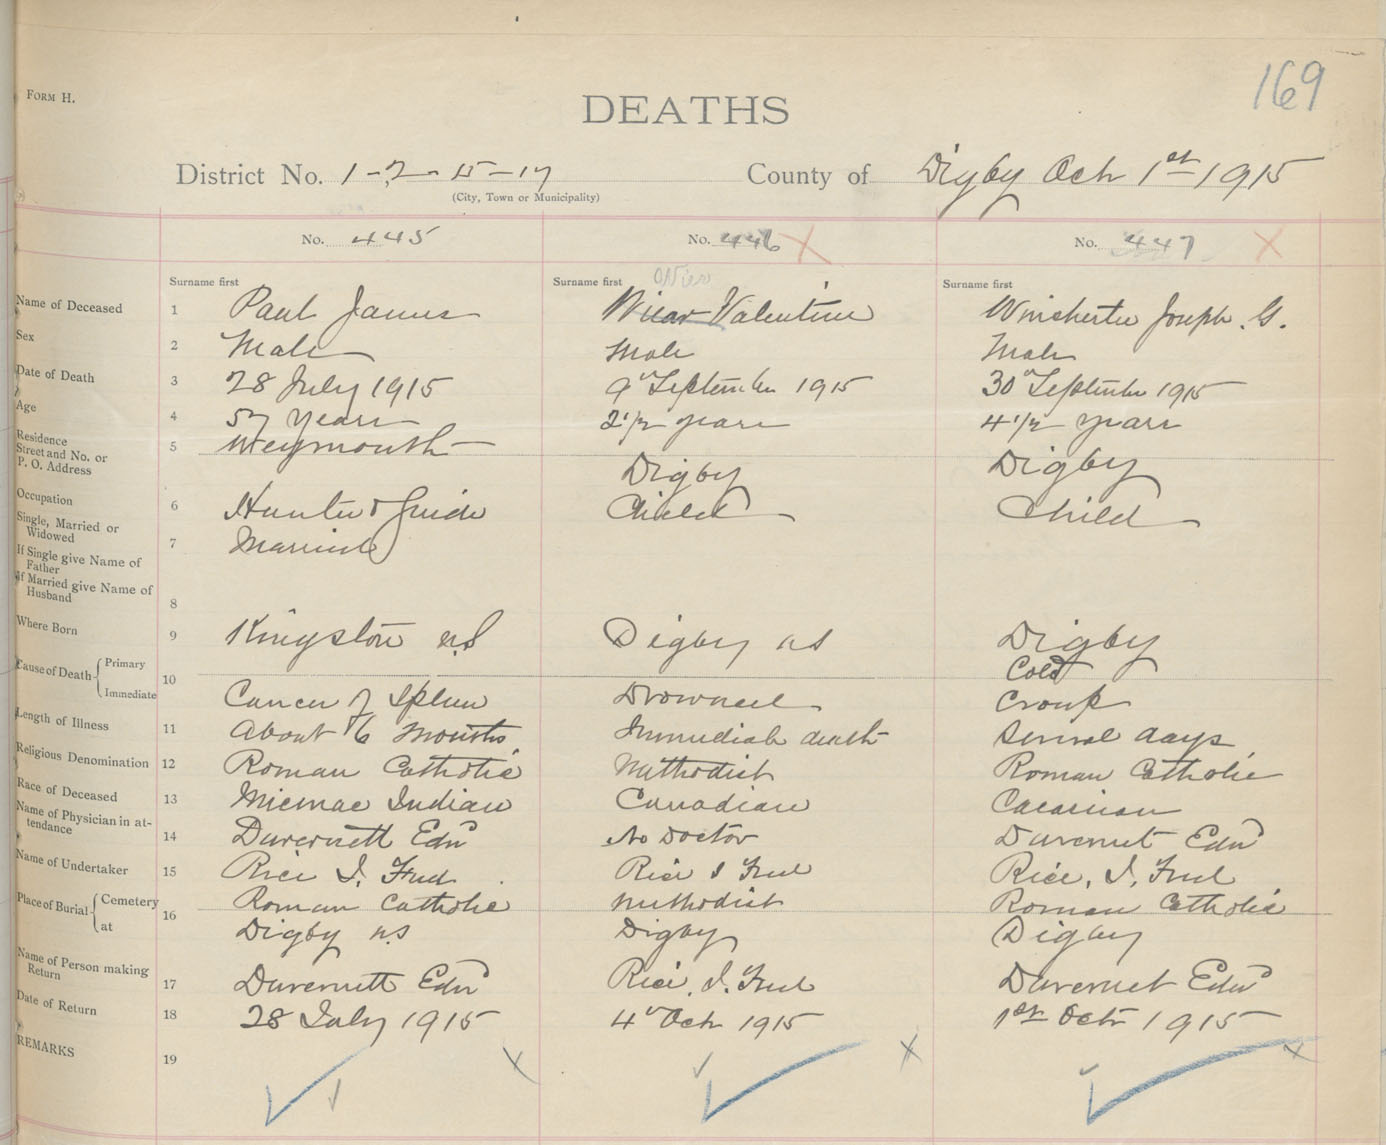 169
FORM H.
DEATHS
District No. 1-2-15-17 County of Digby Oct 1st 1915
(City, Town or Municipality)
No. 445 No. 446 X No. 447 X
Surname first Surname first Surname first
Name of Deceased 1 Paul James Valentine Winchester Joseph. G.
Sex 2 Male Male Male
Date of Death 3 28 July 1915 9" September 1915 30" September 1915
Age 4 57 Years 2 1/2 years 4 1/2 years
Residence
Street and No. or
P. O. Address 5 Weymouth Digby Digby
Occupation 6 Hunter & Guide Child Child
Single, Married or
Widowed 7 Married
If Single give Name of
Father
If Married give Name of
Husband 8
Where Born 9 Kingston N.S Digby NS Digby
Cause of Death { Primary Cold
Immediate 10 Cancer of Spleen Drowned Croup
Length of Illness 11 About 6 Months Immediate death Several days
Religious Denomination 12 Roman Catholic Methodist Roman Catholic
Race of Deceased 13 Micmac Indian Canadian
Name of Physician in at-
tendance 14 Duvernett Edw No Doctor Duvernet Edw
Name of Undertaker 15 Rice I. Fred Rice I Fred Rice, I, Fred
Place of Burial { Cemetery Roman Catholic Methodist Roman Catholic
at 16 Digby N.S Digby Digby
Name of Person making
Return 17 Duvernett Edw Rice, I. Fred Duvernet Edw
Date of Return 18 28 July 1915 4" Oct 1915 1st Oct 1915
REMARKS 19 X X X